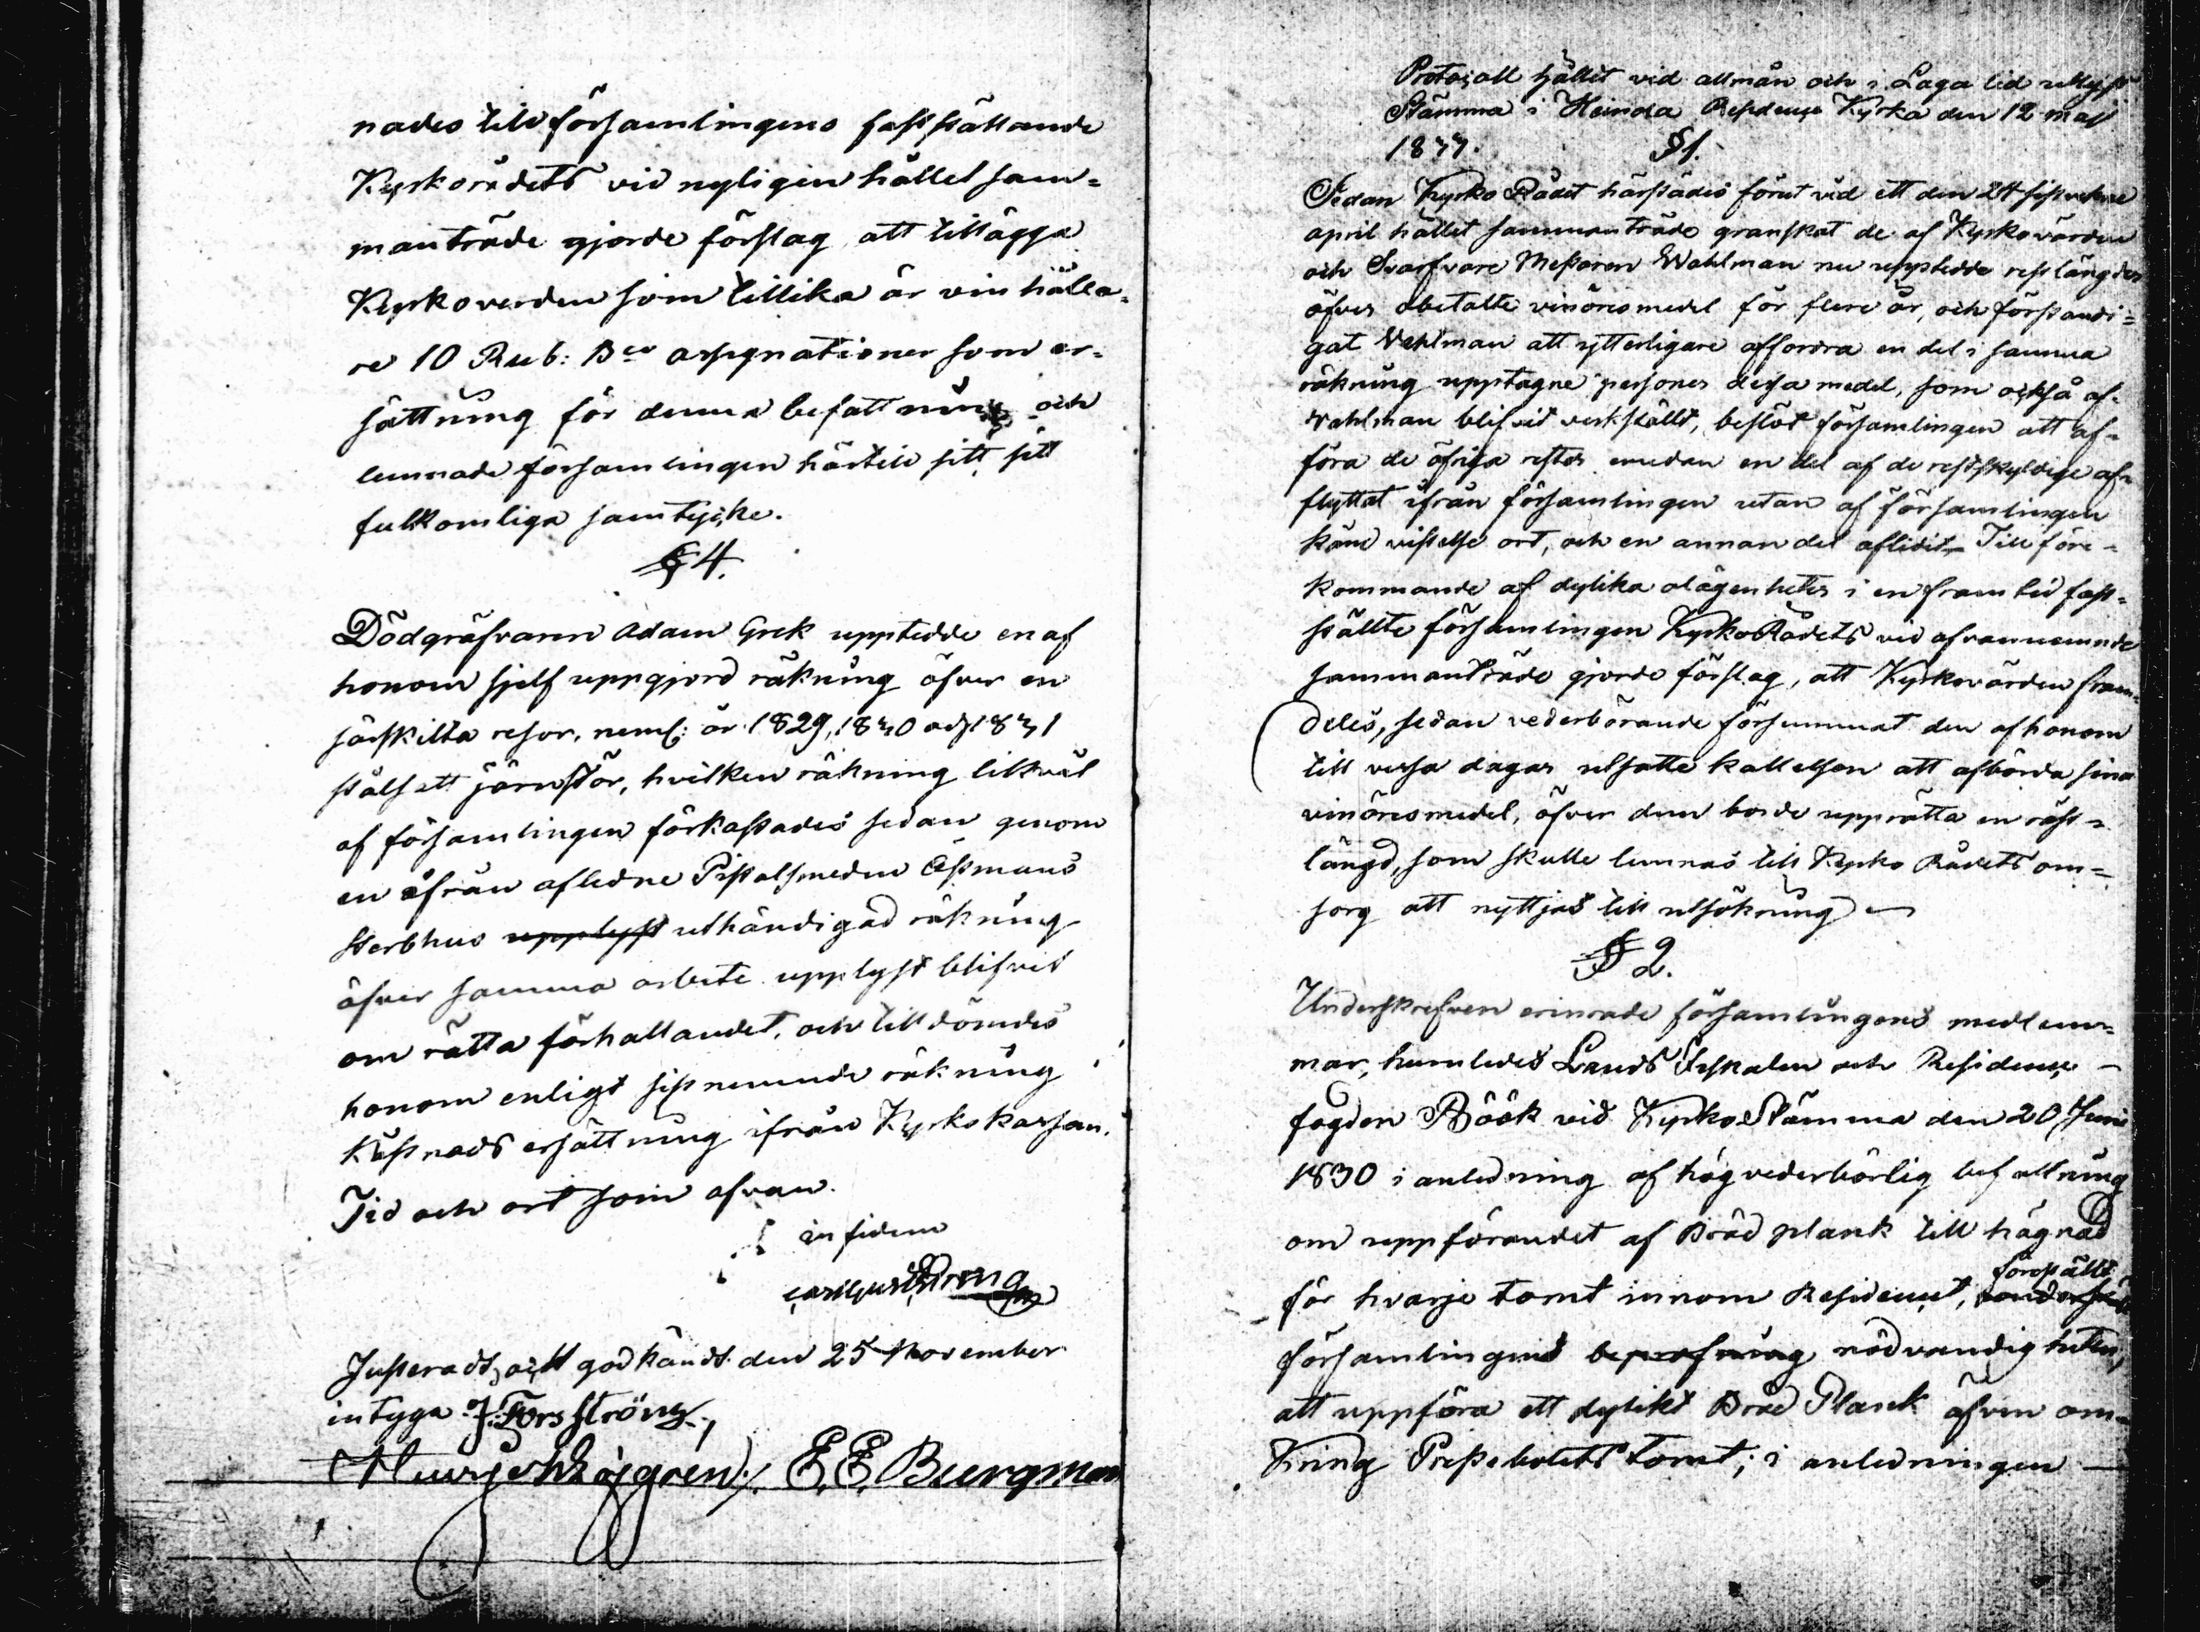 nades till församlingens fastställande
Kyrkorådets vid nyligen hållet sam=
manträde gjorde förslag att tillägga
Kyrkoverden som tillika är vin hålla=
re 10 Rub: Bco assignationer som er=
sättning för denna befattning och
lemnade församlingen härtill sitt sitt
fullkomliga samtycke.
§ 4.
Dödgräfvaren Adam Grek upptedde en af
honom sjelf uppgjord räkning öfver en
särskilta resor, neml: år 1829, 1830 och 1831
stålsatt järnstör, hvilken räkning likväl
af församlingen förkastades sedan genom
en ifrån aflidne Pistolsmeden Åsmans
Sterbhus upplyst uthändigad räkning
öfver samma arbete upplyst blifvit
om rätta förhallandet, och tilldömdes
honom enligt sistnemnde räkning
Kåstnads ersättning ifrån Kyrkokassan.
Tid och ort som ofvan.
in fidem
Justeradt och godkändt den 25 November
intyga J: Forsström,
E. E. Burgman
Protocoll hållit vid allmän och i Laga tid utlyst
Stämma i Heinola Residence Kyrka den 12 maj
1833. §1.
Sedan Kyrko Rådet härstädes förut vid ett den 24 sistvekne
april hållit sammanträde granskat de af Kyrkovärden
och Svarfvare Mestaren Wahlman nu upptedde restlängder
öfver obetalte vinöresmedel för flere år, och förständi=
gat Wahlman att ytterligare affordra en del i samma
räkning upptagne personer dessa medel, som också af
Wahlman blifvit verkställt, beslöt församlingen att af=
föra de öfriga rester emedan en del af de restskyldige af=
flyttat ifrån församlingen utan af församlingen
känd vistelse ort, och en annan del aflidit – Till före=
kommande af dylika olägenheter i en framtid fast=
ställte församlingen KyrkoRådets vid ofvannemnde
sammanträde gjorde förslag, att Kyrkovärden fram=
deles, sedan vederbörande försummat den af honom
till vissa dagar utsatte kallelsen att afbörda sina
vinöresmedel, öfver dem borde upprätta en rest=
längd, som skulle lemnas till Kyrko Rådets om=
sorg att nyttjas till utsökning –
§ 2.
Underskrefven erinrade församlingens medlem=
mar, huruledes Lands Fiskalen och Residence –
fogden Böök vid Kyrko Stämma den 20 Juni
1830 i anledning af hög vederbörlig befallning
om uppförandet af Bräd plank till hägnad
för hvarje tomt innom Residencet, föreställt
församlingens bepröfning nödvändigheten,
att uppföra ett dylikt Bräd Plank äfven om=
kring Prestebolets tomt; i anledningen –